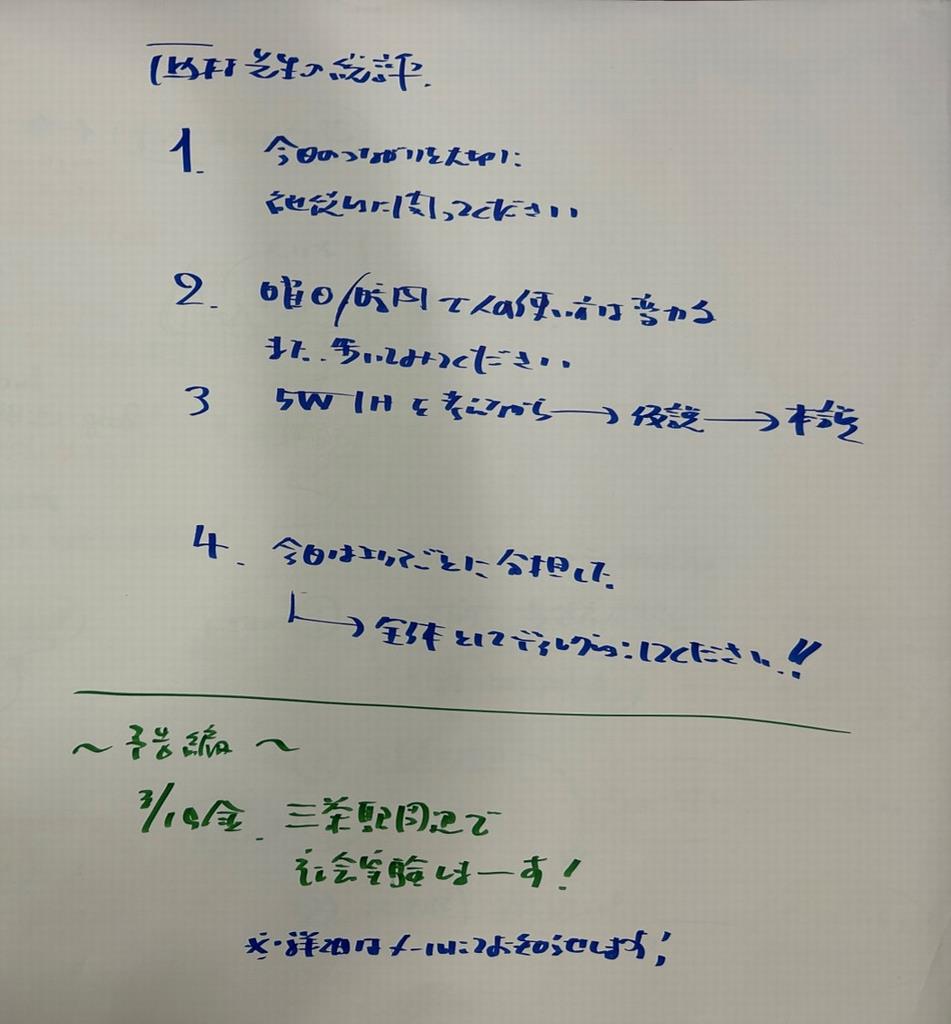 西村先生の総評.
1. 今日のつながりを大切に
地域に関ってください
2. 曜日/時間で人の使い方は変わる
また、歩いてみてください
3 5W1Hを考えながら→仮説→本設
4. 今日はエリアごとに分担した.
→全体としてディレクションしてください!!
～予告編～
3/15金. 三茶駅周辺で
社会実験しまーす!
※詳細はメールにてお知らせします!